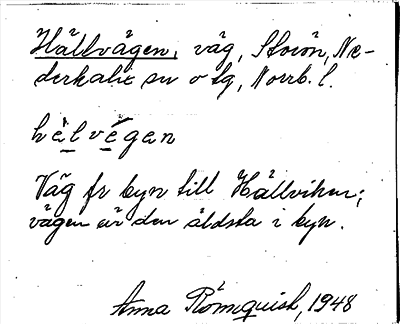 Hällvägen, väg, Storön, Ne-
derkalix sn o tg, Norrb. l.
hèlvégen
Väg fr byn till Hällviken;
vägen är den äldsta i byn.
Anna Rönnquist, 1948